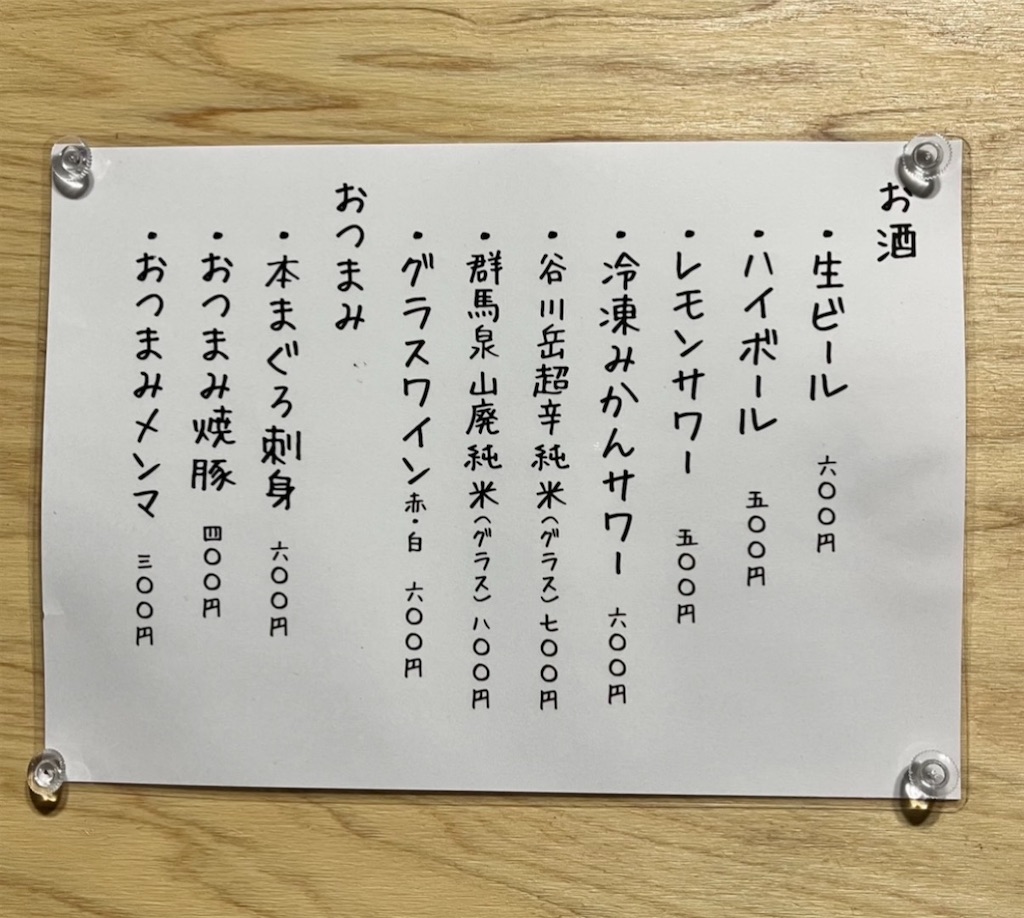 お酒
・生ビール 六〇〇円
・ハイボール 五〇〇円
・レモンサワー 五〇〇円
・冷凍みかんサワー 六〇〇円
・谷川岳超辛純米(グラス)七〇〇円
・群馬泉山廃純米(グラス)八〇〇円
・グラスワイン赤・白 六〇〇円
おつまみ
・本まぐろ刺身 六〇〇円
・おつまみ焼豚 四〇〇円
・おつまみメンマ 三〇〇円